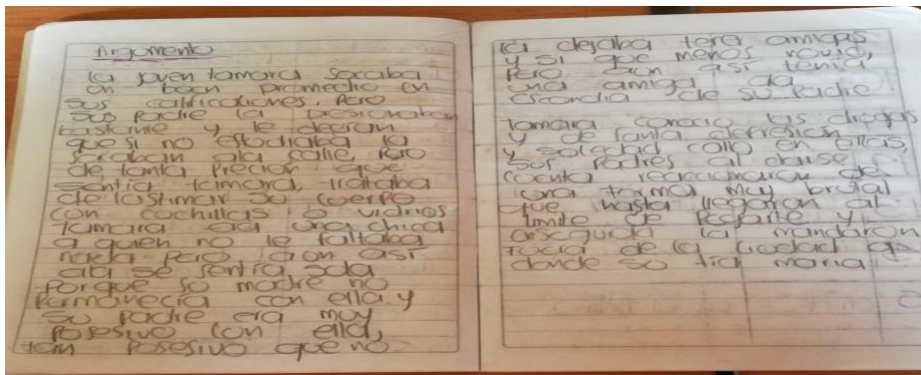 Argumento
la joven tamara sacaba
un buen promedio en
sus calificaciones. Pero
sus padre la presionaban
bastante y le decian
que si no estudiaba la
sacaban ala calle, Pero
de tanta Precion que
sentia tamara, trataba
de lastimar su cuerpo
con cuchillas o vidrios
tamara era una chica
a quien no le faltaba
nada pero aun así
ella se sentia sola
Porque su madre no
Permanecia con ella y
su Padre era muy
Posesivo con ella,
tan Posesivo que no
la dejaba tener amigas
y si que menos novio,
Pero aun asi tenia
una amiga a
escondia de su Padre
tamara conocio las drogas
y de tanta depresion
y soledad callo en ellas,
sus Padres al darse
cuenta reaccionaron de
una forma muy brutal
que hasta llegaron al
limite de Pegarle y
enseguida la mandaron
fuera de la ciudad a
donde su tia maria